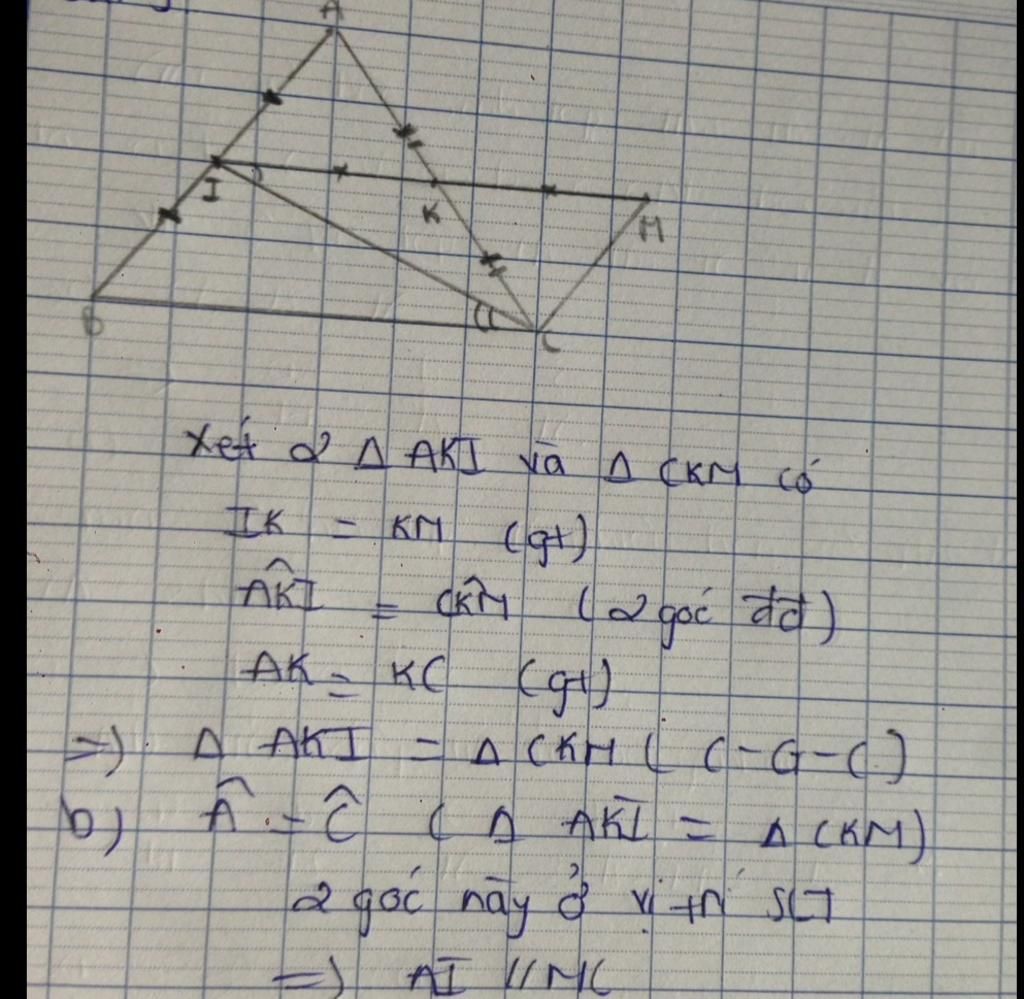 A
I
K
M
B
C
Xét 2 Δ AKI và Δ CKM có
IK = KM (gt)
AKI^ = CKM^ (2 góc đđ)
AK = KC (gt)
=) Δ AKI = Δ CKM ( C-G-C)
b) Â = Ĉ ( Δ AKI = Δ CKM)
2 góc này ở vị trí SLT
=) AI // MC